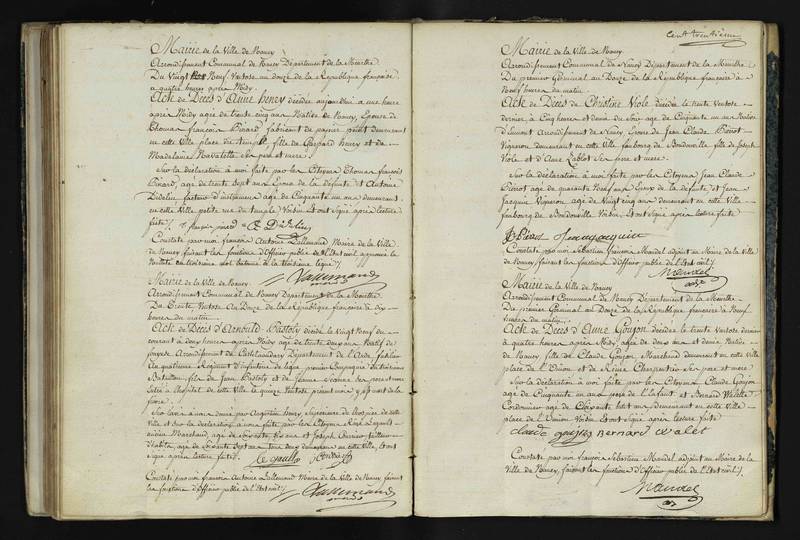 Mairie de la Ville de Nancy
Arrondissement Communal de Nancy Département de la Meurthe
Du Vingt Neuf Ventose an douze de la République française
a quatre heures après Midy
Acte de Décès d'Anne henry décédée aujourdhui à une heure
après Midy agée de trente cinq ans Native de Nancy, Epouse de
Thomas françois Pinard fabricant de papier peint demeurant
en cette Ville place du temple, fille de Gaspard henry et de
Madelaine Navalette Ses pere et mere
Sur la déclaration à moi faite par les Citoyens Thomas françois
Pinard, age de trente Sept ans Epoux de la défunte et Antoine
Didelin facteur d'instrumens age de Cinquante un ans demeurant
en cette Ville petite rue du temple Voisin Et ont Signé après lecture
faite
Constaté par moi françois Antoine Lallemand Maire de la Ville
de Nancy faisant les fonctions d'Officier public de l'Etat civil approuvé la
à la troisieme ligne
Lallemand
Mairie de la Ville de Nancy
Arrondissement Communal de Nancy Departement de la Meurthe
Du Trente Ventose An Douze de la République française à dix
heures du matin
Acte de Décès d'Arnould Bastoly décédé le Vingt Neuf du
courant à deux heures après Midy age de trente deux ans Natif de
Arrondissement de Castelnaudary Département de l'Aude fusilier
Au quatrieme Régiment d'infanterie de ligne premier Compagnie du troisieme
Bataillon fils de Jean Bastoly et de Jeanne Ses pere et mere
Entré à l'hopital de cette Ville le quinze Ventose présent mois y est mort de la
fièvre
Sur l'avis à moi donné par Augustine henry, Supérieure de l'hospice de cette
Ville et Sur la déclaration à moi faite par les Citoyens
Marchand, age de Soixante Six ans et Joseph tailleur
age de Soixante Sept ans tous deux demeurant en cette Ville, Et ont
Signé après lecture faite
Constaté par moi françois Antoine Lallemand Maire de la Ville de Nancy faisant
les fonctions d'Officier public de l'Etat civil
Lallemand
Cent trentième
Mairie de la Ville de Nancy
Arrondissement Communal de Nancy Département de la Meurthe
Du premier Germinal an Douze de la République française à
Neuf heures du matin
Acte de Décès de Christine Viole décédée le trente Ventose
dernier à Cinq heures et demie du Soir age de Cinquante un ans Native
Arrondissement de Nancy, Epouse de Jean Claude Pierot
Vigneron demeurant en cette Ville faubourg de Boudonville fille de Joseph
Viole et d'Anne Lablot Ses pere et mere
Sur la déclaration à moi faite par les Citoyens Jean Claude
Pierot age de quarante Neuf ans Epoux de la défunte et Jean
Jacquin Vigneron age de Vingt cinq ans demeurant en cette Ville
faubourg de Boudonville Voisin Et ont Signé après lecture faite
Jean jacquin
Constaté par moi Sébastien françois Mandel adjoint au Maire de la Ville
de Nancy faisant les fonctions d'Officier public de l'Etat civil
Mandel
Mairie de la Ville de Nancy
Arrondissement Communal de Nancy Département de la Meurthe
Du premier Germinal an Douze de la République française à Neuf
heures du matin
Acte de Décès d'Anne Goujon décédée le trente Ventose dernier
à quatre heures après Midy age de deux ans et demie Native
de Nancy, fille de Claude Goujon, Marchand demeurant en cette Ville
place de l'Union et de Reine Charpentier Ses pere et mere
Sur la déclaration à moi faite par les Citoyens Claude Goujon
age de Cinquante un ans pere de l'Enfant et Bernard Walet
Cordonnier age de Soixante huit ans demeurant en cette Ville
place de l'Union Voisin Et ont Signé après lecture faite
claude goujon Bernard Walet
Constaté par moi françois Sébastien Mandel adjoint au Maire de la
Ville de Nancy, faisant les fonctions d'Officier public de l'Etat civil
Mandel